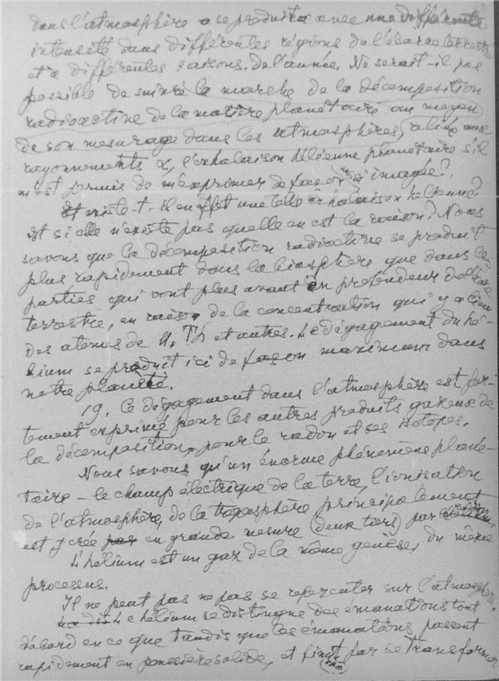 dans l'atmosphère a se produits avec une différente
intensité dans différentes régions de l'écorce terrestre
et à différentes saisons de l'année. Ne serait-il pas
possible de suivre la marche de la décomposition
radioactive de la matière planétaire au moyen
de son mesurage dans les atmosphères,
rayonnements α, l'exhalaison hélienne planétaire s'il
m'est permis de m'exprimer de façon si imagée?
Et existe-t-il en effet une telle exhalaison hélienne?
Et si elle n'existe pas quelle en est la raison? Nous
savons que la décomposition radioactive se produit
plus rapidement dans la biosphère que dans les
parties qui vont plus avant en profondeur de l'écorce
terrestre, en raison de la concentration qui y a lieu
des atomes de U, Th et autres. Le dégagement du hé-
lium se produit ici de façon maximum dans
notre planète.
19. Ce dégagement dans l'atmosphère est for-
tement exprimé pour les autres produits gazeux de
la décomposition, pour le radon et ses isotopes.
Nous savons qu'un énorme phénomène plané-
taire - le champ électrique de la terre, l'ionisation
de l'atmosphère, de la troposphère principalement
est créé en grande mesure (deux tiers) par
L'hélium est un gaz de la même genèse, du même
processus.
Il ne peut pas ne pas se repercuter sur l'atmosphère.
L'hélium se distingue des émanations tout
d'abord en ce que tandis que les émanations passent
rapidement en poussière solide, et finit par se transformer